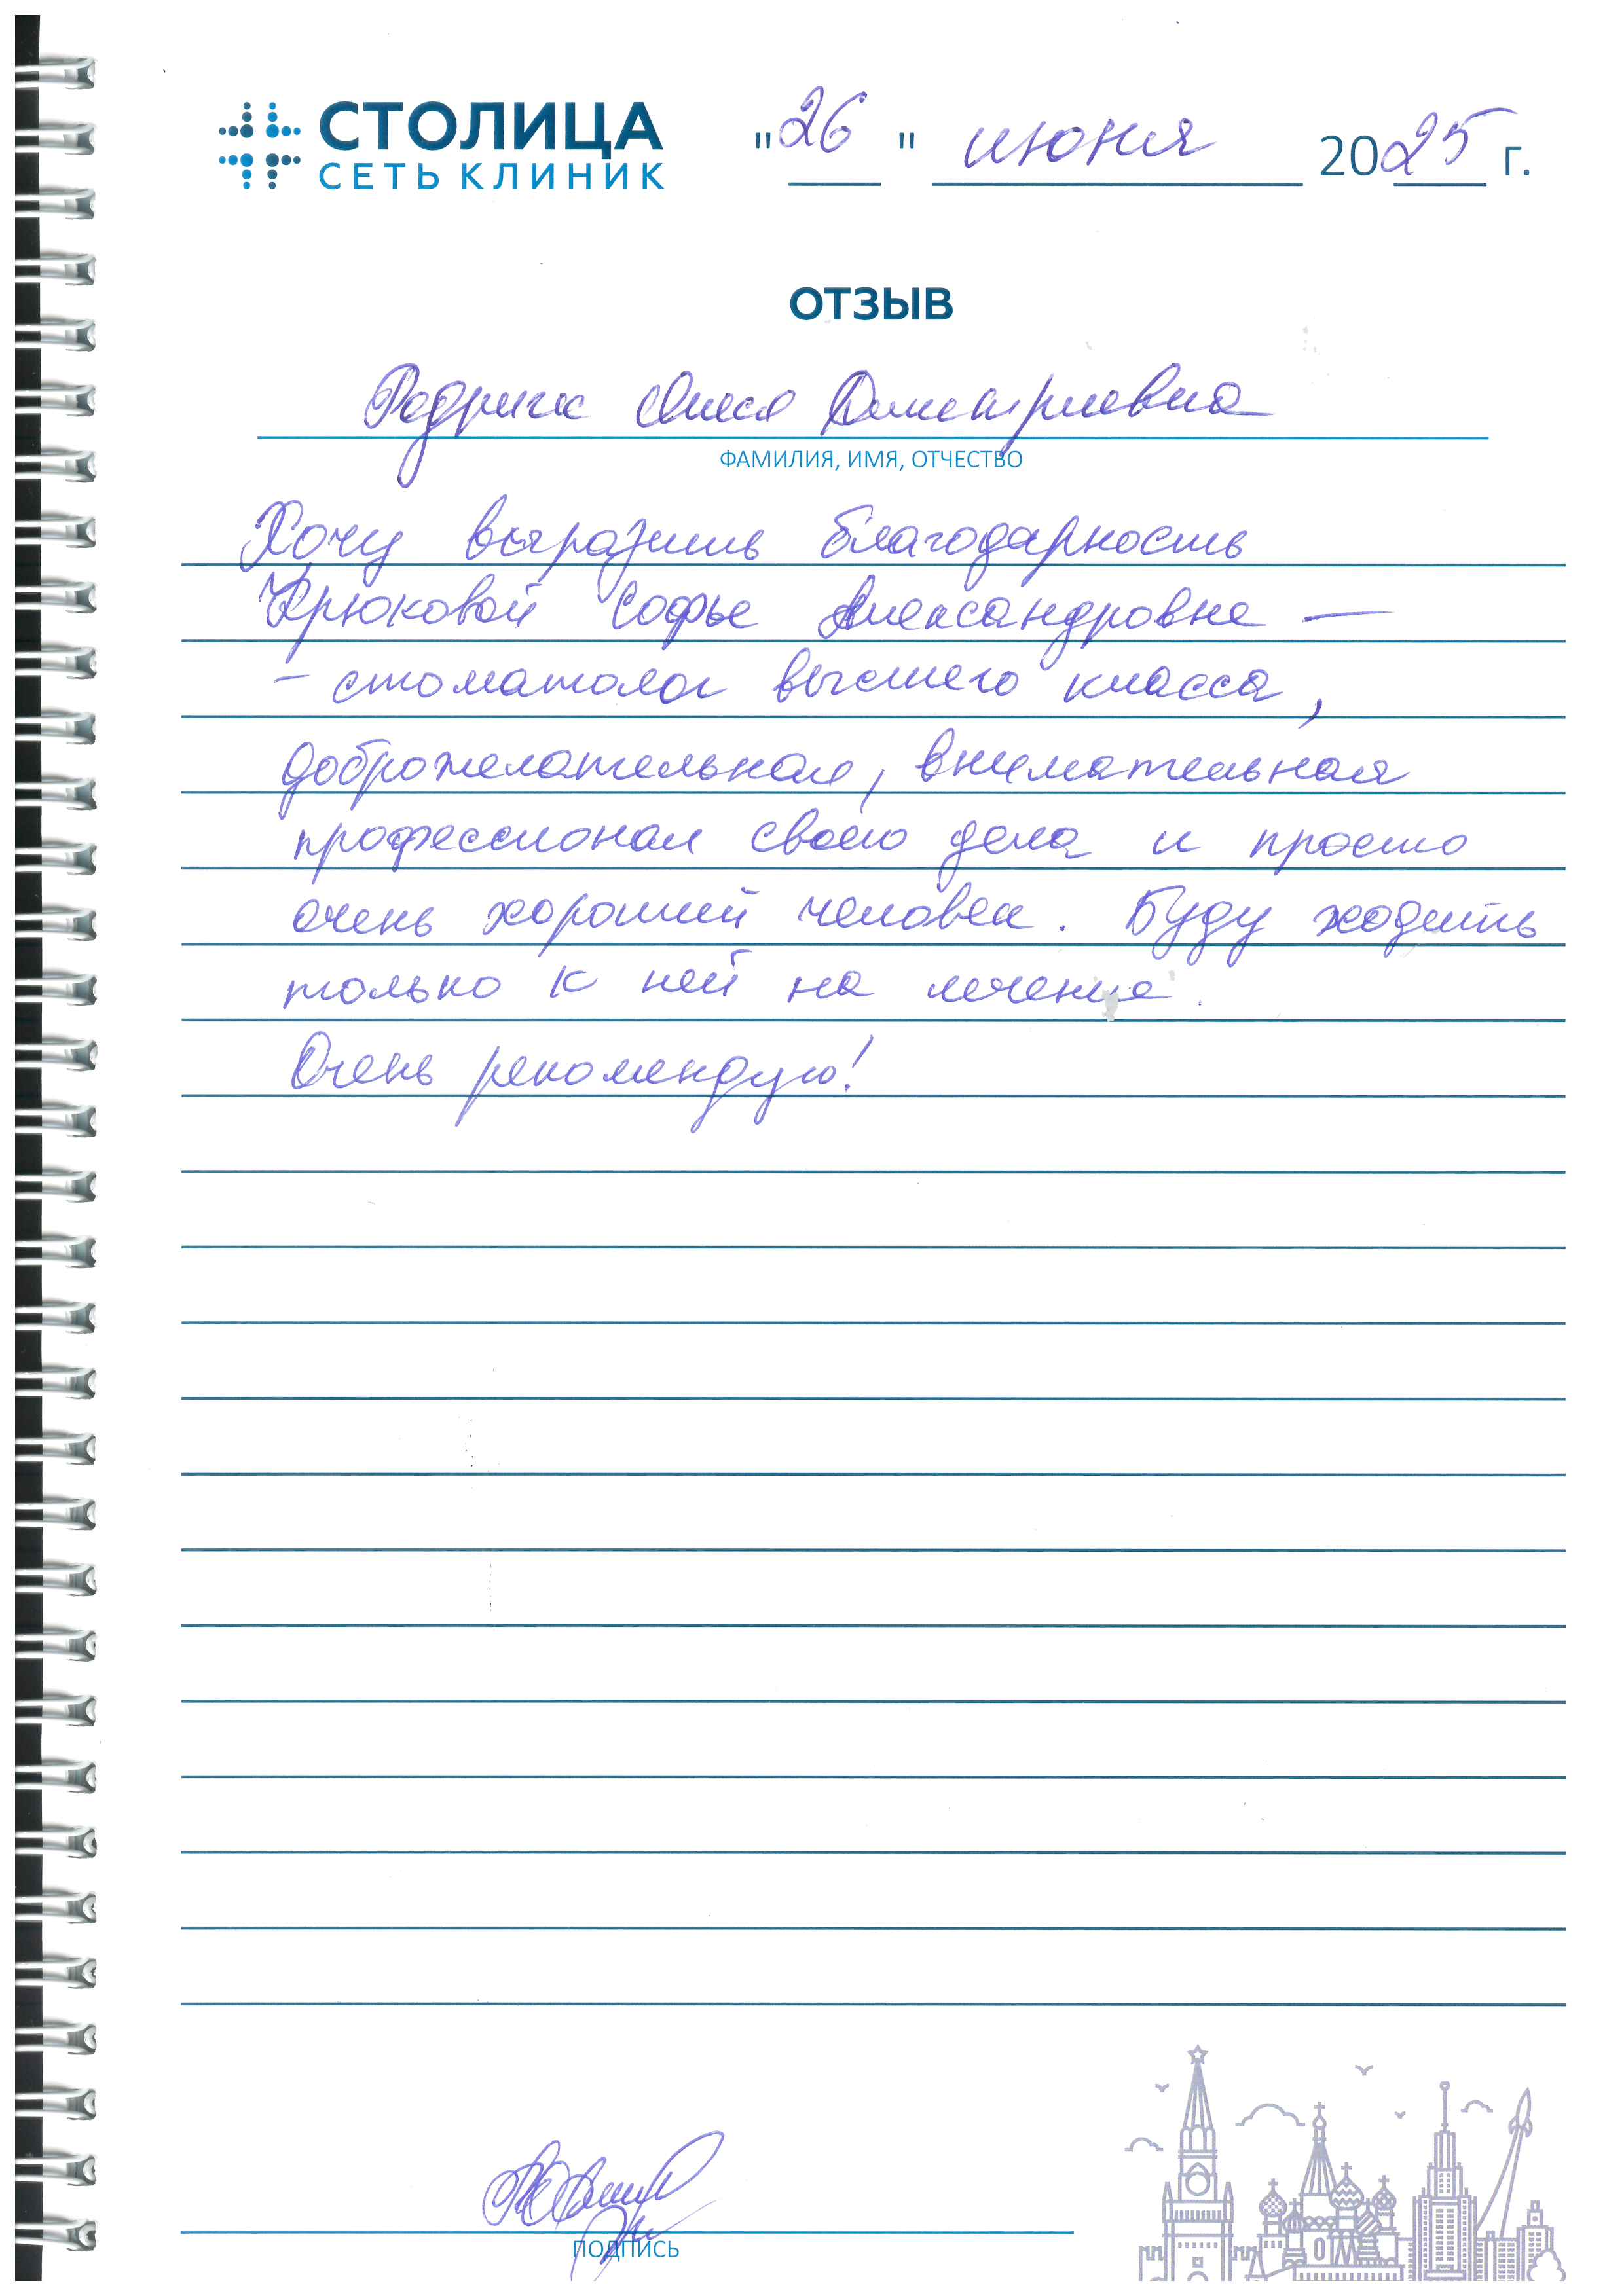 СТОЛИЦА
СЕТЬ КЛИНИК
"26" июня 2025 г.
ОТЗЫВ
Родригес Олеся Дмитриевна
ФАМИЛИЯ, ИМЯ, ОТЧЕСТВО
Хочу выразить благодарность
Крюковой Софье Александровне —
- стоматолог высшего класса,
доброжелательная, внимательная
профессионал своего дела и просто
очень хороший человек. Буду ходить
только к ней на лечение.
Очень рекомендую!
ПОДПИСЬ